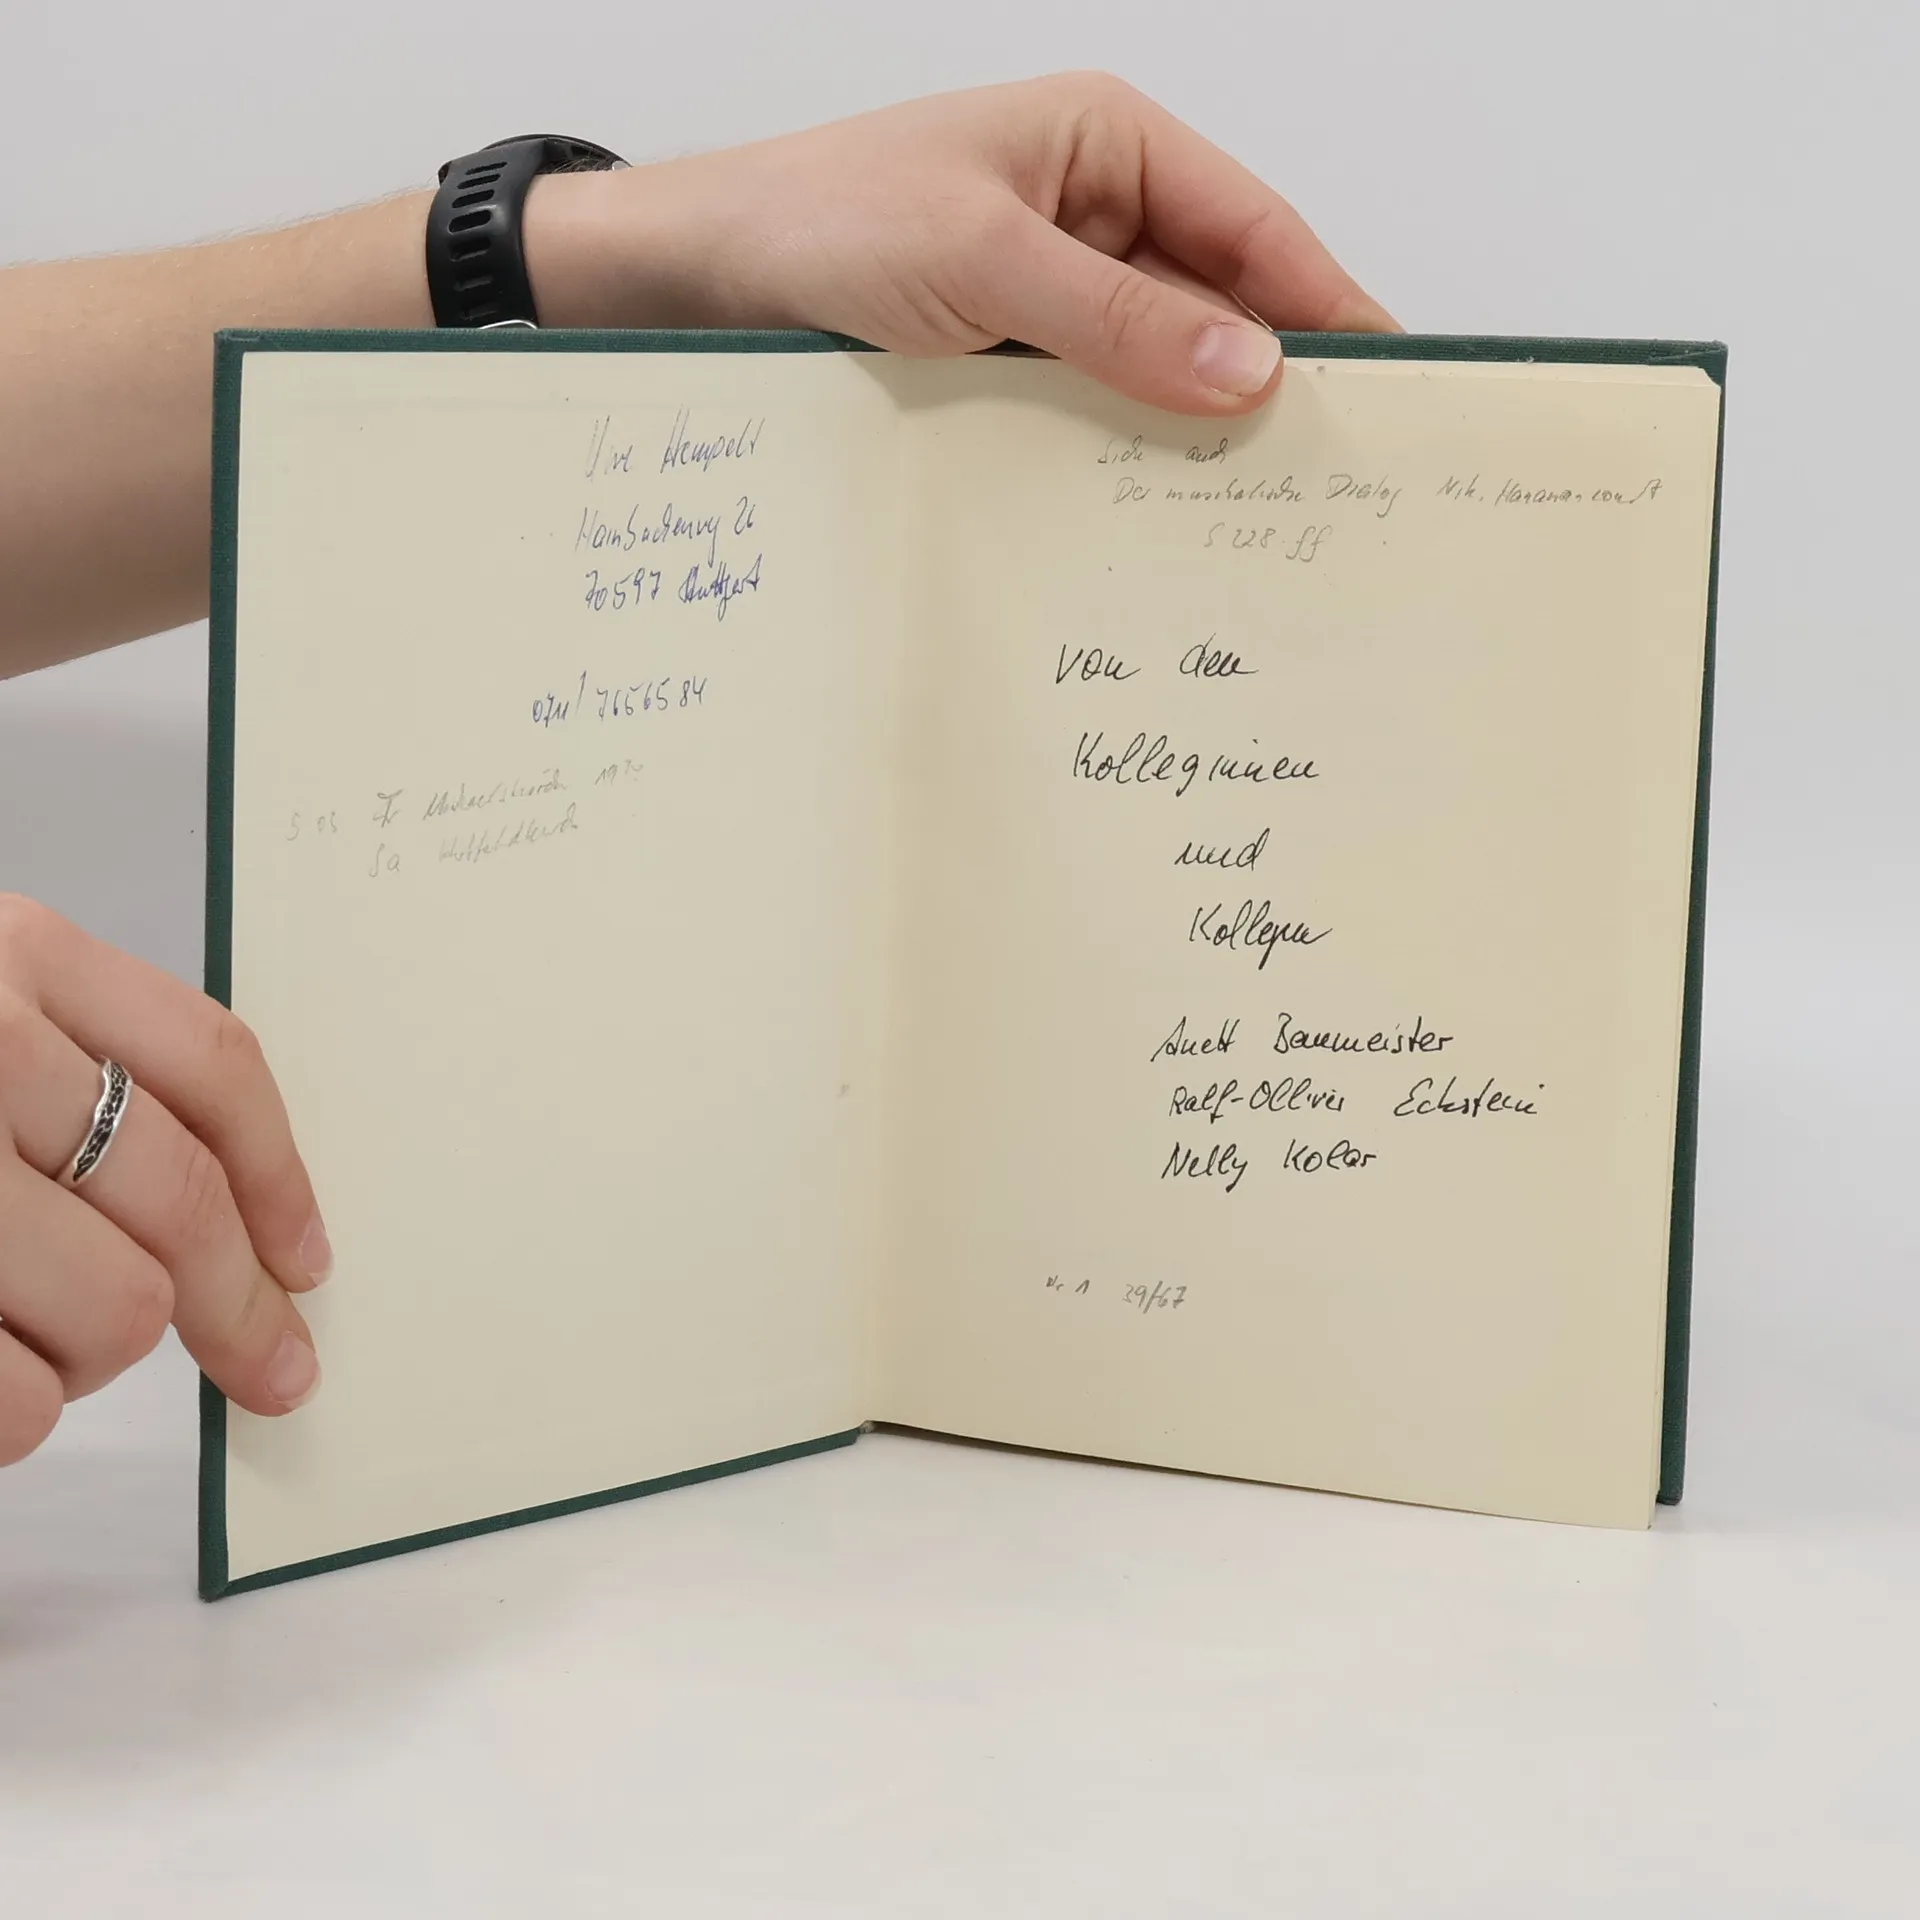 Uwe Hempelt
26
70597 Stuttgart
0711/7656584
Fr 19
Sa
Siehe auch
Der musikalische Dialog Nik. Harnoncourt
S 228 ff
von den
Kolleginnen
und
Kollegen
Anett Baumeister
Ralf-Olliver Eckstein
Nelly Kolar
Nr 1 39/67